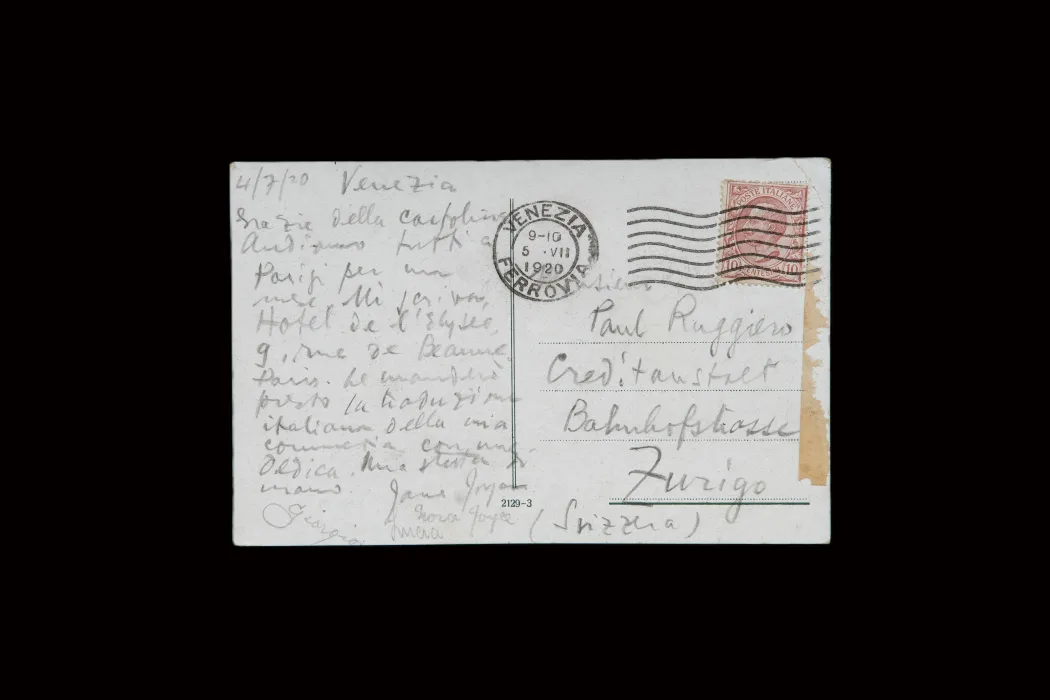 4/7/20 Venezia
Grazie della cartolina
Andiamo tutti a
Parigi per un
mese. Mi scriva,
Hotel de l'Elysée,
9, rue de Beaune
Paris. Le manderò
presto la traduzione
italiana della mia
commedia con una
dedica. Una stretta di
mano. James Joyce
Nora Joyce
Giorgio Lucia
VENEZIA
9-10
5 ·VII
1920
FERROVIA
POSTE ITALIANE
10 CENTESIMI 10
Paul Ruggiero
Creditanstalt
Bahnhofstrasse
Zurigo
(Svizzera)
2129-3